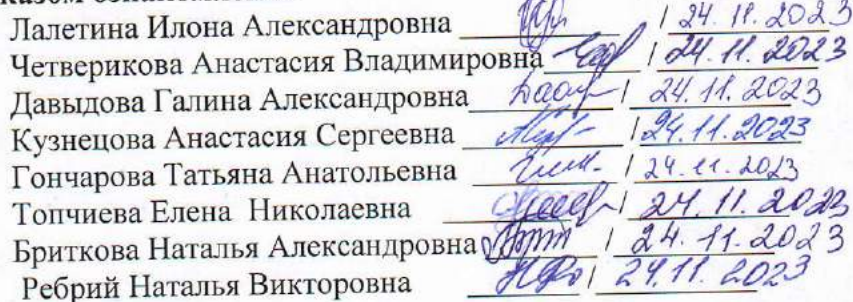 Лалетина Илона Александровна / 24.11.2023
Четверикова Анастасия Владимировна / 24.11.2023
Давыдова Галина Александровна / 24.11.2023
Кузнецова Анастасия Сергеевна / 24.11.2023
Гончарова Татьяна Анатольевна / 24.11.2023
Топчиева Елена Николаевна / 24.11.2023
Бриткова Наталья Александровна / 24.11.2023
Ребрий Наталья Викторовна / 24.11.2023